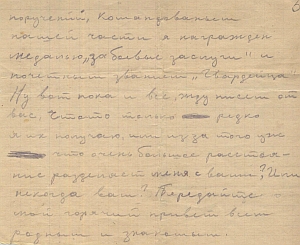 поручений, Командованьем
нашей части я награжден
медалью „за боевые заслуги" и
почетным званием „Гвардейца
Ну вот пока и все, жду писем от
вас, что то только редко
я их получаю, или из за того уже
что очень большое расстоя-
ние разделяет меня с вами? Или
некогда вам? Передайте
мой горячий привет всем
родным и знакомым.